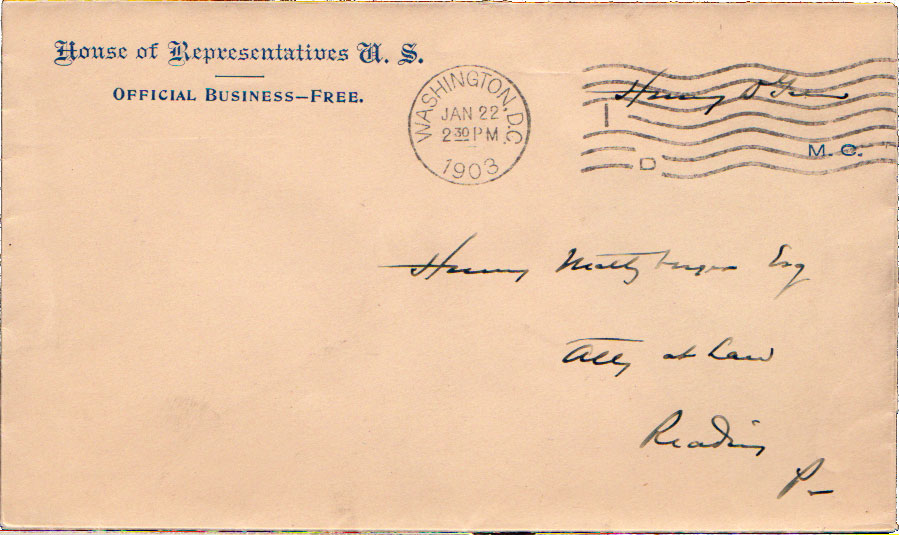 House of Representatives U. S.
OFFICIAL BUSINESS—FREE.
WASHINGTON, D.C.
JAN 22
2 30 PM
1903
Henry D Green
M. C.
D
Henry Maltzberger Esq
Atty at Law
Reading
Pa